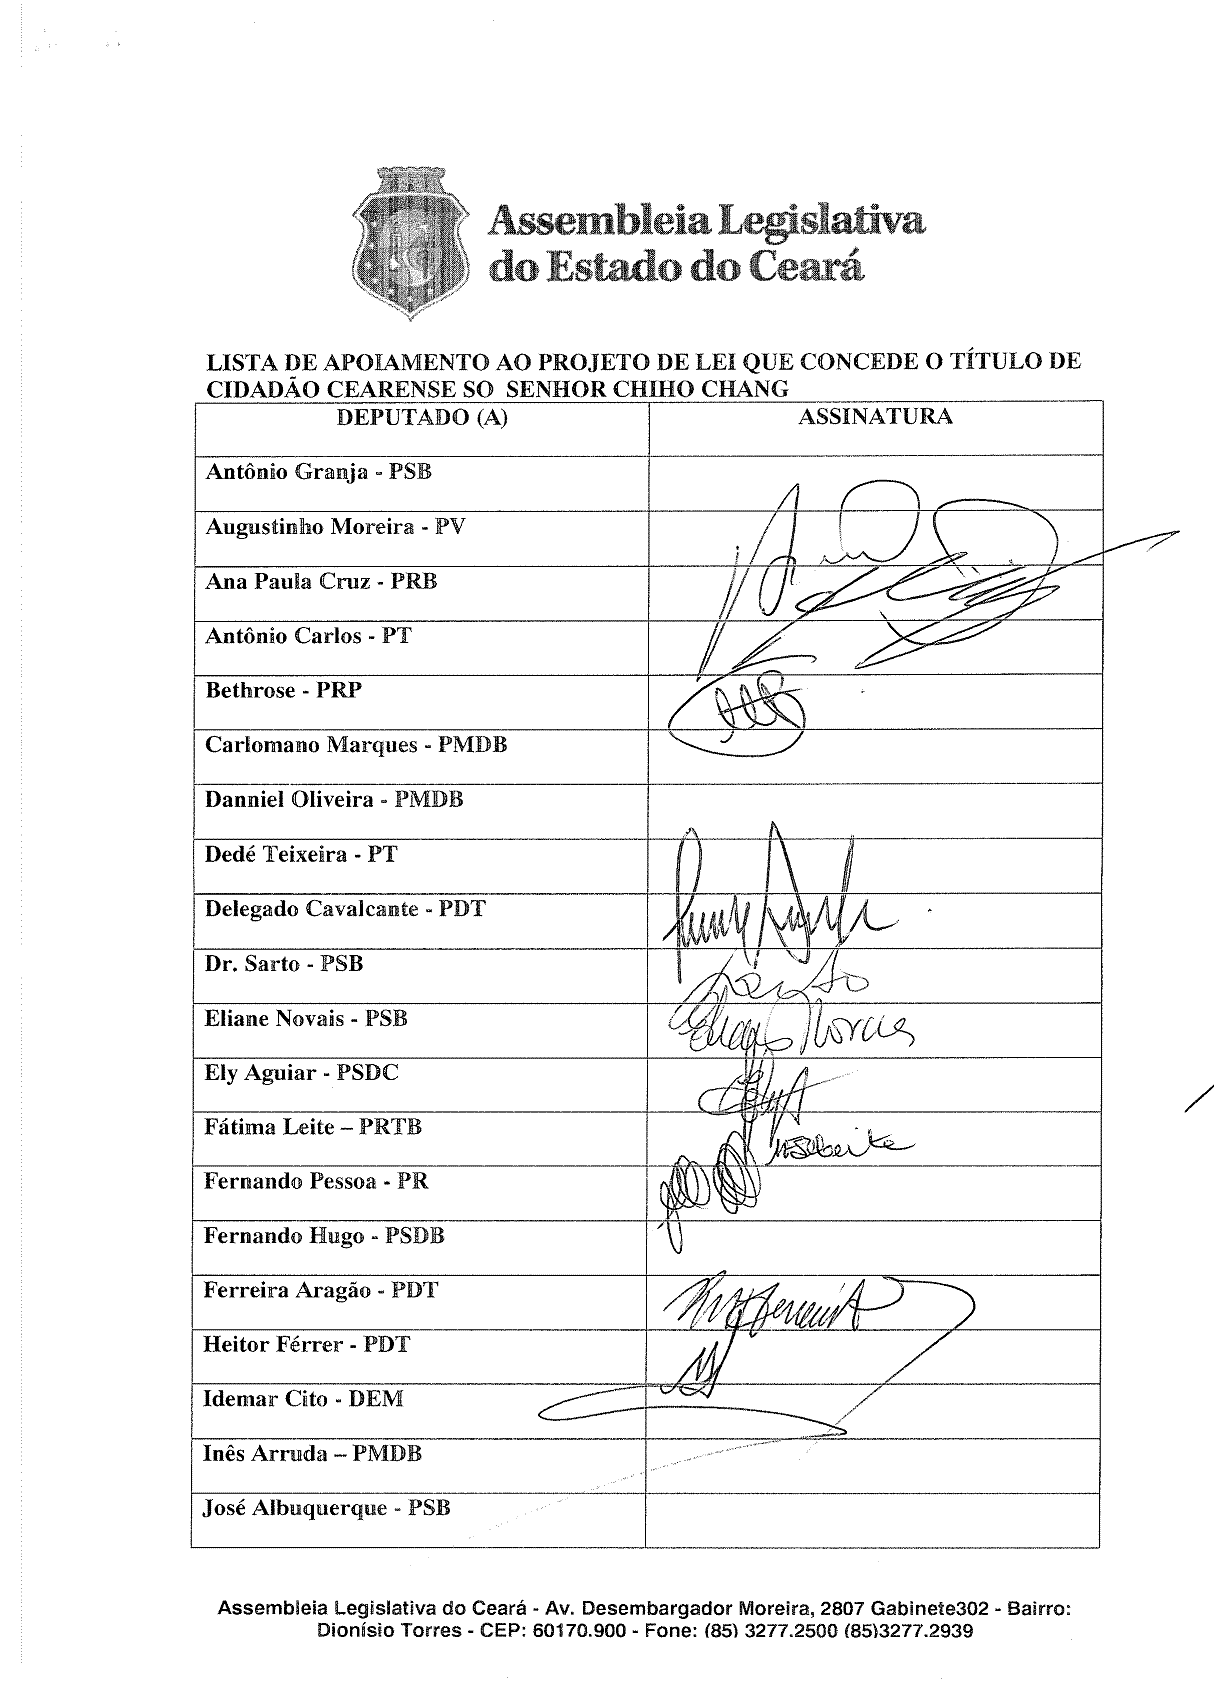 Assembleia Legislativa
do Estado do Ceará
LISTA DE APOIAMENTO AO PROJETO DE LEI QUE CONCEDE O TÍTULO DE
CIDADÃO CEARENSE SO SENHOR CHIHO CHANG
DEPUTADO (A) ASSINATURA
Antônio Granja - PSB
Augustinho Moreira - PV
Ana Paula Cruz - PRB
Antônio Carlos - PT
Bethrose - PRP
Carlomano Marques - PMDB
Danniel Oliveira - PMDB
Dedé Teixeira - PT
Delegado Cavalcante - PDT
Dr. Sarto - PSB
Eliane Novais - PSB
Ely Aguiar - PSDC
Fátima Leite – PRTB
Fernando Pessoa - PR
Fernando Hugo - PSDB
Ferreira Aragão - PDT
Heitor Férrer - PDT
Idemar Cito - DEM
Inês Arruda – PMDB
José Albuquerque - PSB
Assembleia Legislativa do Ceará - Av. Desembargador Moreira, 2807 Gabinete302 - Bairro:
Dionísio Torres - CEP: 60170.900 - Fone: (85) 3277.2500 (85)3277.2939